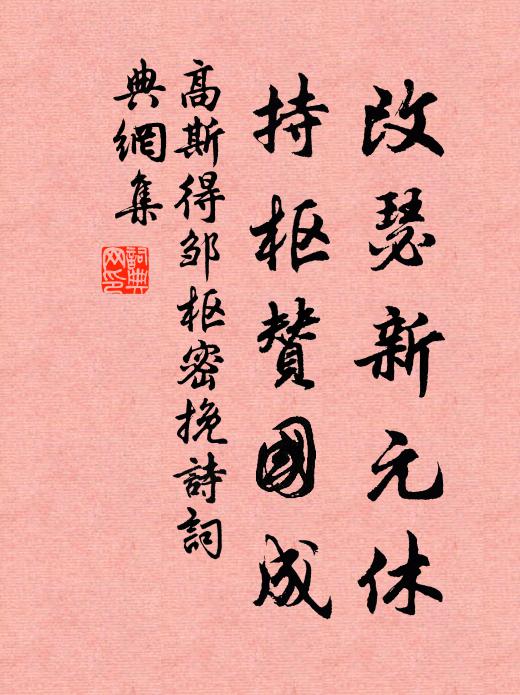 改瑟新元休
持枢贊國成
高斯得邹枢密挽詩詞
典網集
詞典網印